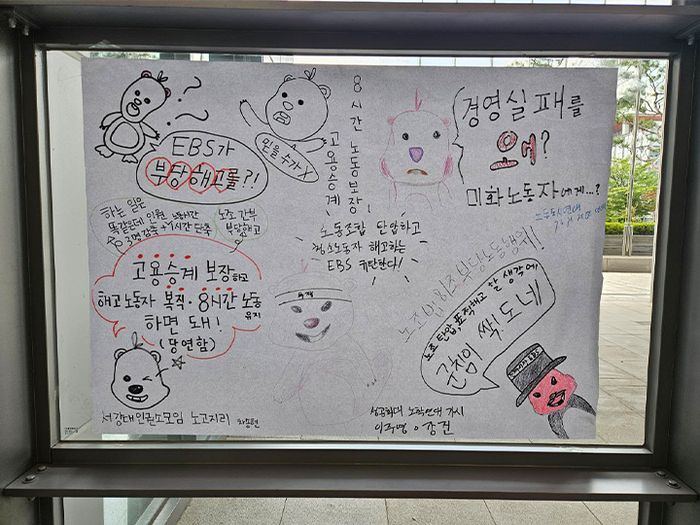 EBS가
부당해고를?!
믿을 수가 X
8시간 노동보장!
고용승계
경영실패를
왜?
미화노동자에게...?
하는 일은
똑같은데 인원
3명 감축 + 1시간 단축
노조 간부
부당해고
노동조합 탄압하고
청소노동자 해고하는
EBS 규탄한다!
고용승계 보장하고
해고노동자 복직·8시간 노동
유지
하면 돼!
(당연함)
노조 탄압, 표적해고 할 생각에
군침이 싹 도네
서강대 인권소모임 노고지리
성공회대 노학연대 가시